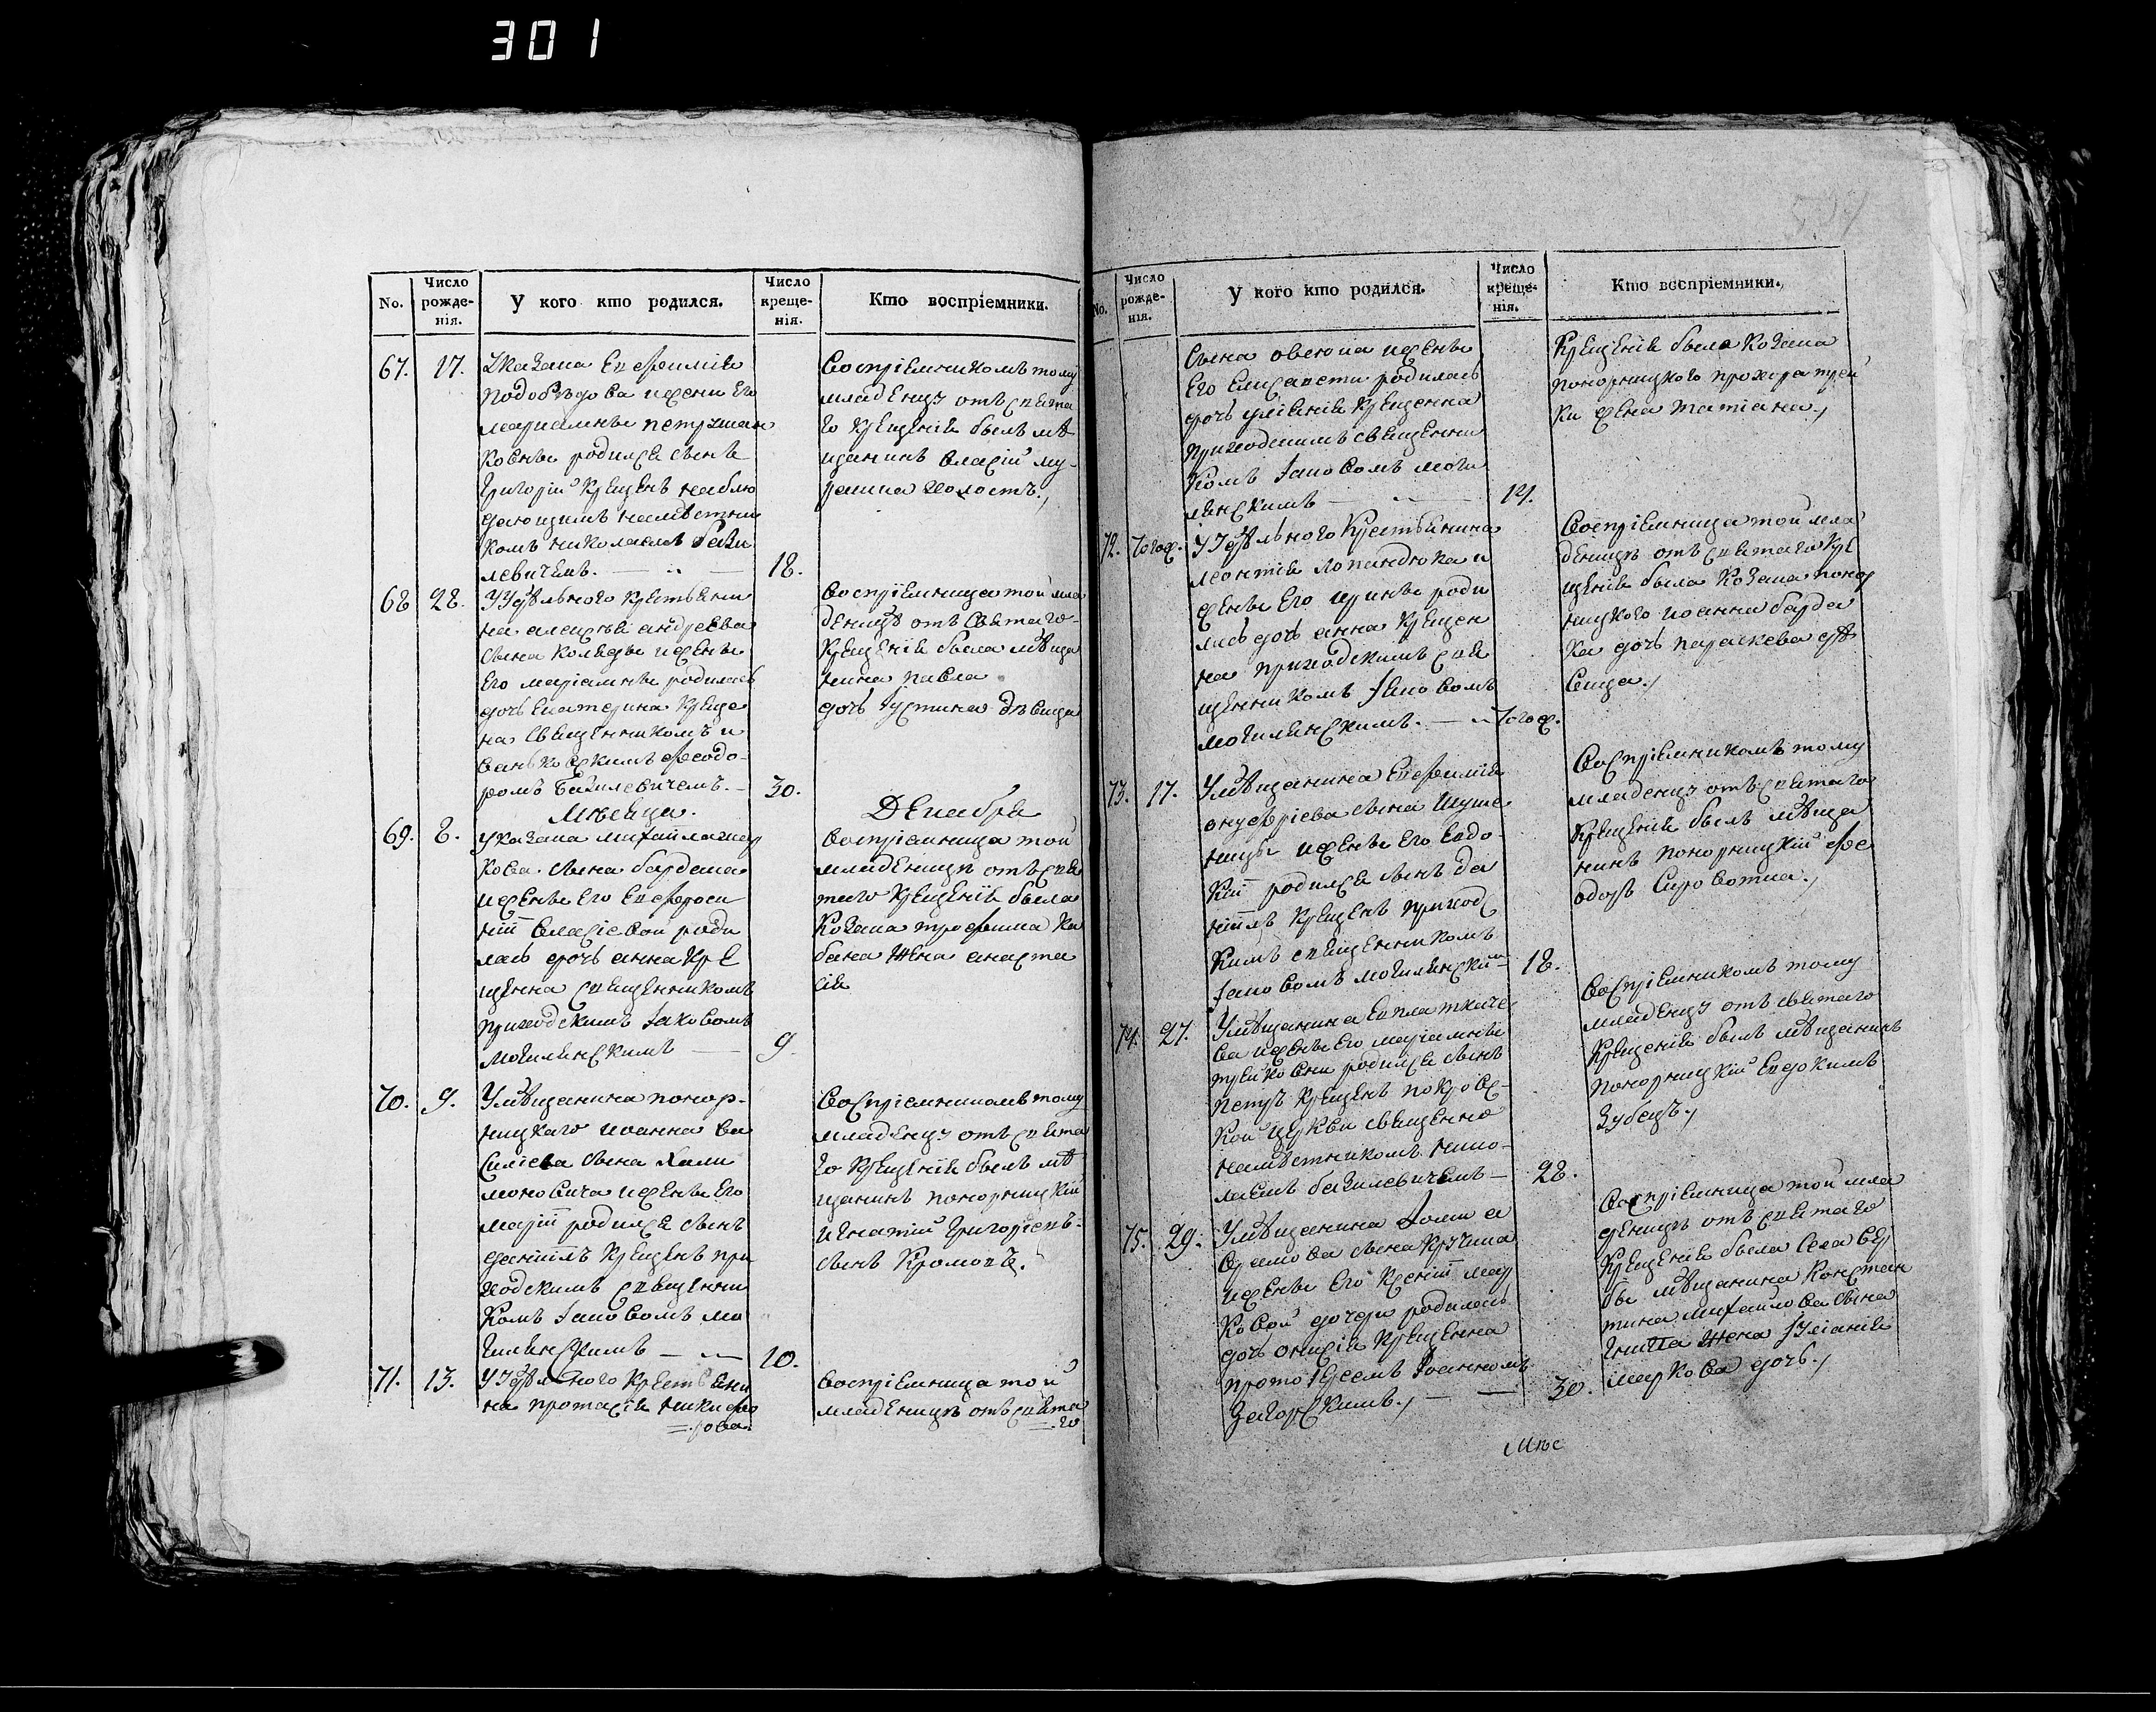 301
No.
Число рожденія.
У кого кто родился.
Число крещенія.
Кто воспріемники.
67. 17. У Казака Евфимія
Подобѣдова и жени Его
маріамны петрзман
ковны родился сынъ
Григорій Крещенъ наблю
дающимъ намѣстни
комъ николаемъ бази
левичемъ. 18.
Воспріемникомъ тому
младенцу отъ свята
го Крещенія былъ мѣ
щанинъ власій му
68 28. У Удѣльного крестьяни
на алексѣя андреева
сына Коляды и жены
Его маріамны родилась
дочь Екатерина Креще
на Священникомъ и
ваньковскимъ феодо
ромъ Базилевичемъ. 30.
Воспріемница той мла
деницѣ отъ Святаго
Крещенія была мѣща
нина павла
дочь Іустина дѣвица
Мѣсяца. Декабря
69. 8. У Казака михаила мар
кова сына бардака
и жены Его Евфроси
ніи власіевой роди
лась дочь анна Кре
щенна священникомъ
приходскимъ Іаковомъ
могилянскимъ 9.
Воспріемница той
младеницѣ отъ свя
таго Крещенія была
Козака трофима Ка
бана жена анаста
сія
70. 9. У мѣщанина понор
ницкаго иоанна ва
силіева сына Хали
моновича и жены Его
маріи родился сынъ
даніилъ Крещенъ при
ходскимъ священни
комъ Іаковомъ мо
гилянскимъ 10.
Воспріемникомъ тому
младенцу отъ свята
го Крещенія былъ мѣ
щанинъ понорницкій
игнатій Григоріевъ
сынъ Кромопъ.
71. 13. У Удѣльного Крестьяни
на протасія никифо
рова
Воспріемница той
младеницѣ отъ свята
го
No.
Число рожденія.
У кого кто родился.
Число крещенія.
Кто воспріемники.
сына овсюка и жены
Его Елисавети родилась
дочь уліянія Крещенна
приходскимъ священни
комъ Іаковомъ моги
лянскимъ 14.
Крещенія была Козака
понорницкого прохора трей
ки жена татіана.
72. тогож. У Удѣльного Крестьянина
леонтія лопандюка и
жены Его ирины роди
лась дочь анна Крещен
на приходскимъ свя
щенникомъ Іаковомъ
могилянскимъ. тогож.
Воспріемница той мла
деницѣ отъ святаго Кре
щенія была Козака понор
ницкого иоанна барда
ка дочь параскева дѣ
вица.
73. 17. У мѣщанина Евфимія
онуфріева сына Шуше
ницы и жены Его Евдо
кіи родился сынъ да
ніилъ Крещенъ приход
скимъ священникомъ
Іаковомъ могилянским 18.
Воспріемникомъ тому
младенцу отъ святаго
Крещенія былъ мѣща
нинъ понорницкій фе
одоръ Сыровотка.
74. 27. У мѣщанина
ва и жены Его маріамны
трейковни родился сынъ
петръ Крещенъ покровс
кой церкви священно
намѣстникомъ нико
лаемъ базилевичемъ 28.
Воспріемникомъ тому
младенцу отъ святаго
Крещенія былъ мѣщанинъ
понорницкій Евдокимъ
Зубецъ.
75. 29. У мѣщанина Хомы а
врамова сына Кузина
и жены Его Ксеніи мар
ковой дочери родилась
дочь онисія Крещенна
протоіереемъ Іоанномъ
Загорскимъ. 30.
Воспріемница той мла
деницѣ отъ святаго
Крещенія была Села вер
бы мѣщанина Констан
тина михайлова сына
жена Іуліанія
маркова дочь.
Мѣс